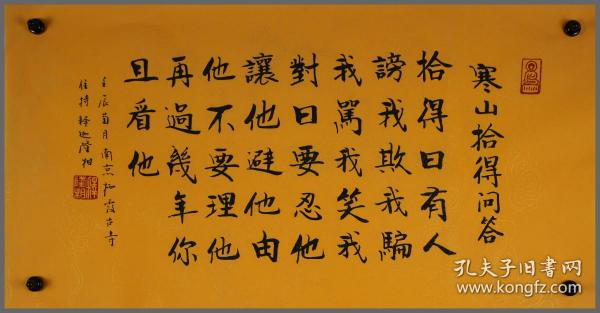 寒山拾得问答
拾得曰有人
謗我欺我騙
我罵我笑我
對曰要忍他
讓他避他由
他不要理他
再過幾年你
且看他
壬辰菊月南京栖霞古寺
住持释迦隆相
孔夫子旧书网
www.kongfz.com